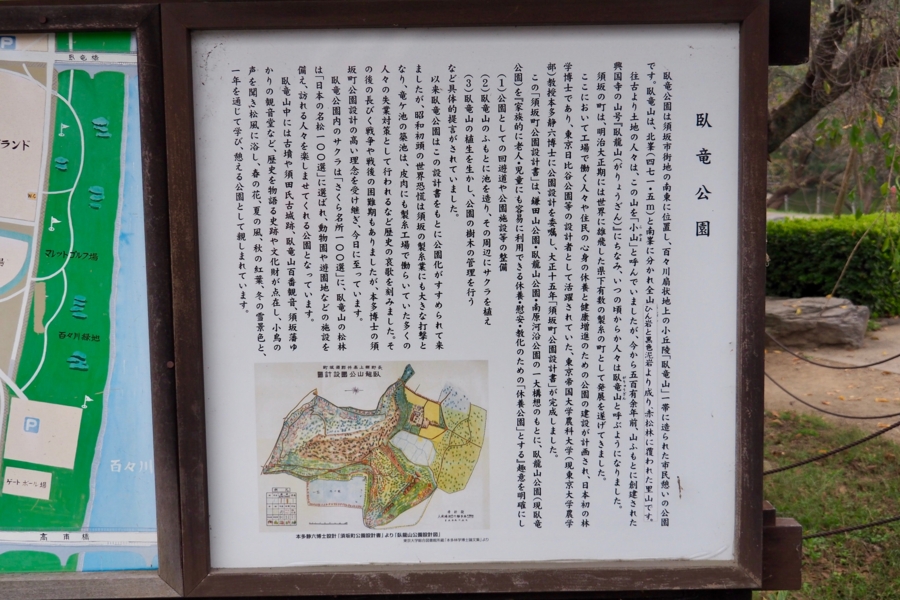 臥竜公園
臥竜公園は須坂市街地の南東に位置し、百々川扇状地上の小丘陵「臥竜山」一帯に造られた市民憩いの公園
です。臥竜山は、北峯(四七一・五m)と南峯に分かれ全山ひん岩と黒色泥岩より成り、赤松林に覆われた里山です。
往古より土地の人々は、この山を「小山」と呼んでいましたが、今から五百有余年前、山ふもとに創建された
興国寺の山号『臥竜山(がりょうざん)』にちなみ、いつの頃からか人々は臥竜山と呼ぶようになりました。
須坂の町は、明治大正期には世界に雄飛した県下有数の製糸の町として発展を遂げてきました。
ここにおいて工場で働く人々や住民の心身の休養と健康増進のための公園の建設が計画され、日本初の林
学博士であり、東京日比谷公園等の設計者として活躍されていた、東京帝国大学農科大学(現東京大学農学
部)教授本多静六博士に公園設計を委嘱し、大正十五年「須坂町公園設計書」が完成しました。
この「須坂町公園設計書」は、鎌田山公園・臥龍山公園・南原河沿公園の一大構想のもとに、臥龍山公園(現臥竜
公園)を「家族的に老人・児童にも容易に利用できる休養・慰安・教化のための「休養公園」とする」趣意を明確にし
(1)公園としての回遊道や公園施設等の整備
(2)臥竜山のふもとに池を造り、その周辺にサクラを植え
(3)臥竜山の植生を生かし、公園の樹木の管理を行う
など具体的提言がされていました。
以来臥竜公園はこの設計書をもとに公園化がすすめられて来
ましたが、昭和初頭の世界恐慌は須坂の製糸業にも大きな打撃と
なり、竜ケ池の築池は、皮肉にも製糸工場で働らいていた多くの
人々の失業対策として行われるなど歴史の哀歌を刻みました。そ
の後の長びく戦争や戦後の困難期もありましたが、本多博士の須
坂町公園設計の高い理念を受け継ぎ、今日に至っています。
臥竜公園内のサクラは「さくら名所一〇〇選」に、臥竜山の松林
は「日本の名松一〇〇選」に選ばれ、動物園や遊園地などの施設を
備え、訪れる人々を楽しませてくれる公園となっています。
臥竜山中には古墳や須田氏古城跡、臥竜山百番観音、須坂藩ゆ
かりの観音堂など、歴史を物語る史跡や文化財が点在し、小鳥の
声を聞き松風に浴し、春の花、夏の風、秋の紅葉、冬の雪景色と、
一年を通じて学び、憩える公園として親しまれています。
臥龍山公園設計圖
本多静六博士設計「須坂町公園設計書」より「臥龍山公園設計図」
P
臥竜橋
ランド
マレットゴルフ場
百々川緑池
P
百々川
ゲートボール場
高甫橋